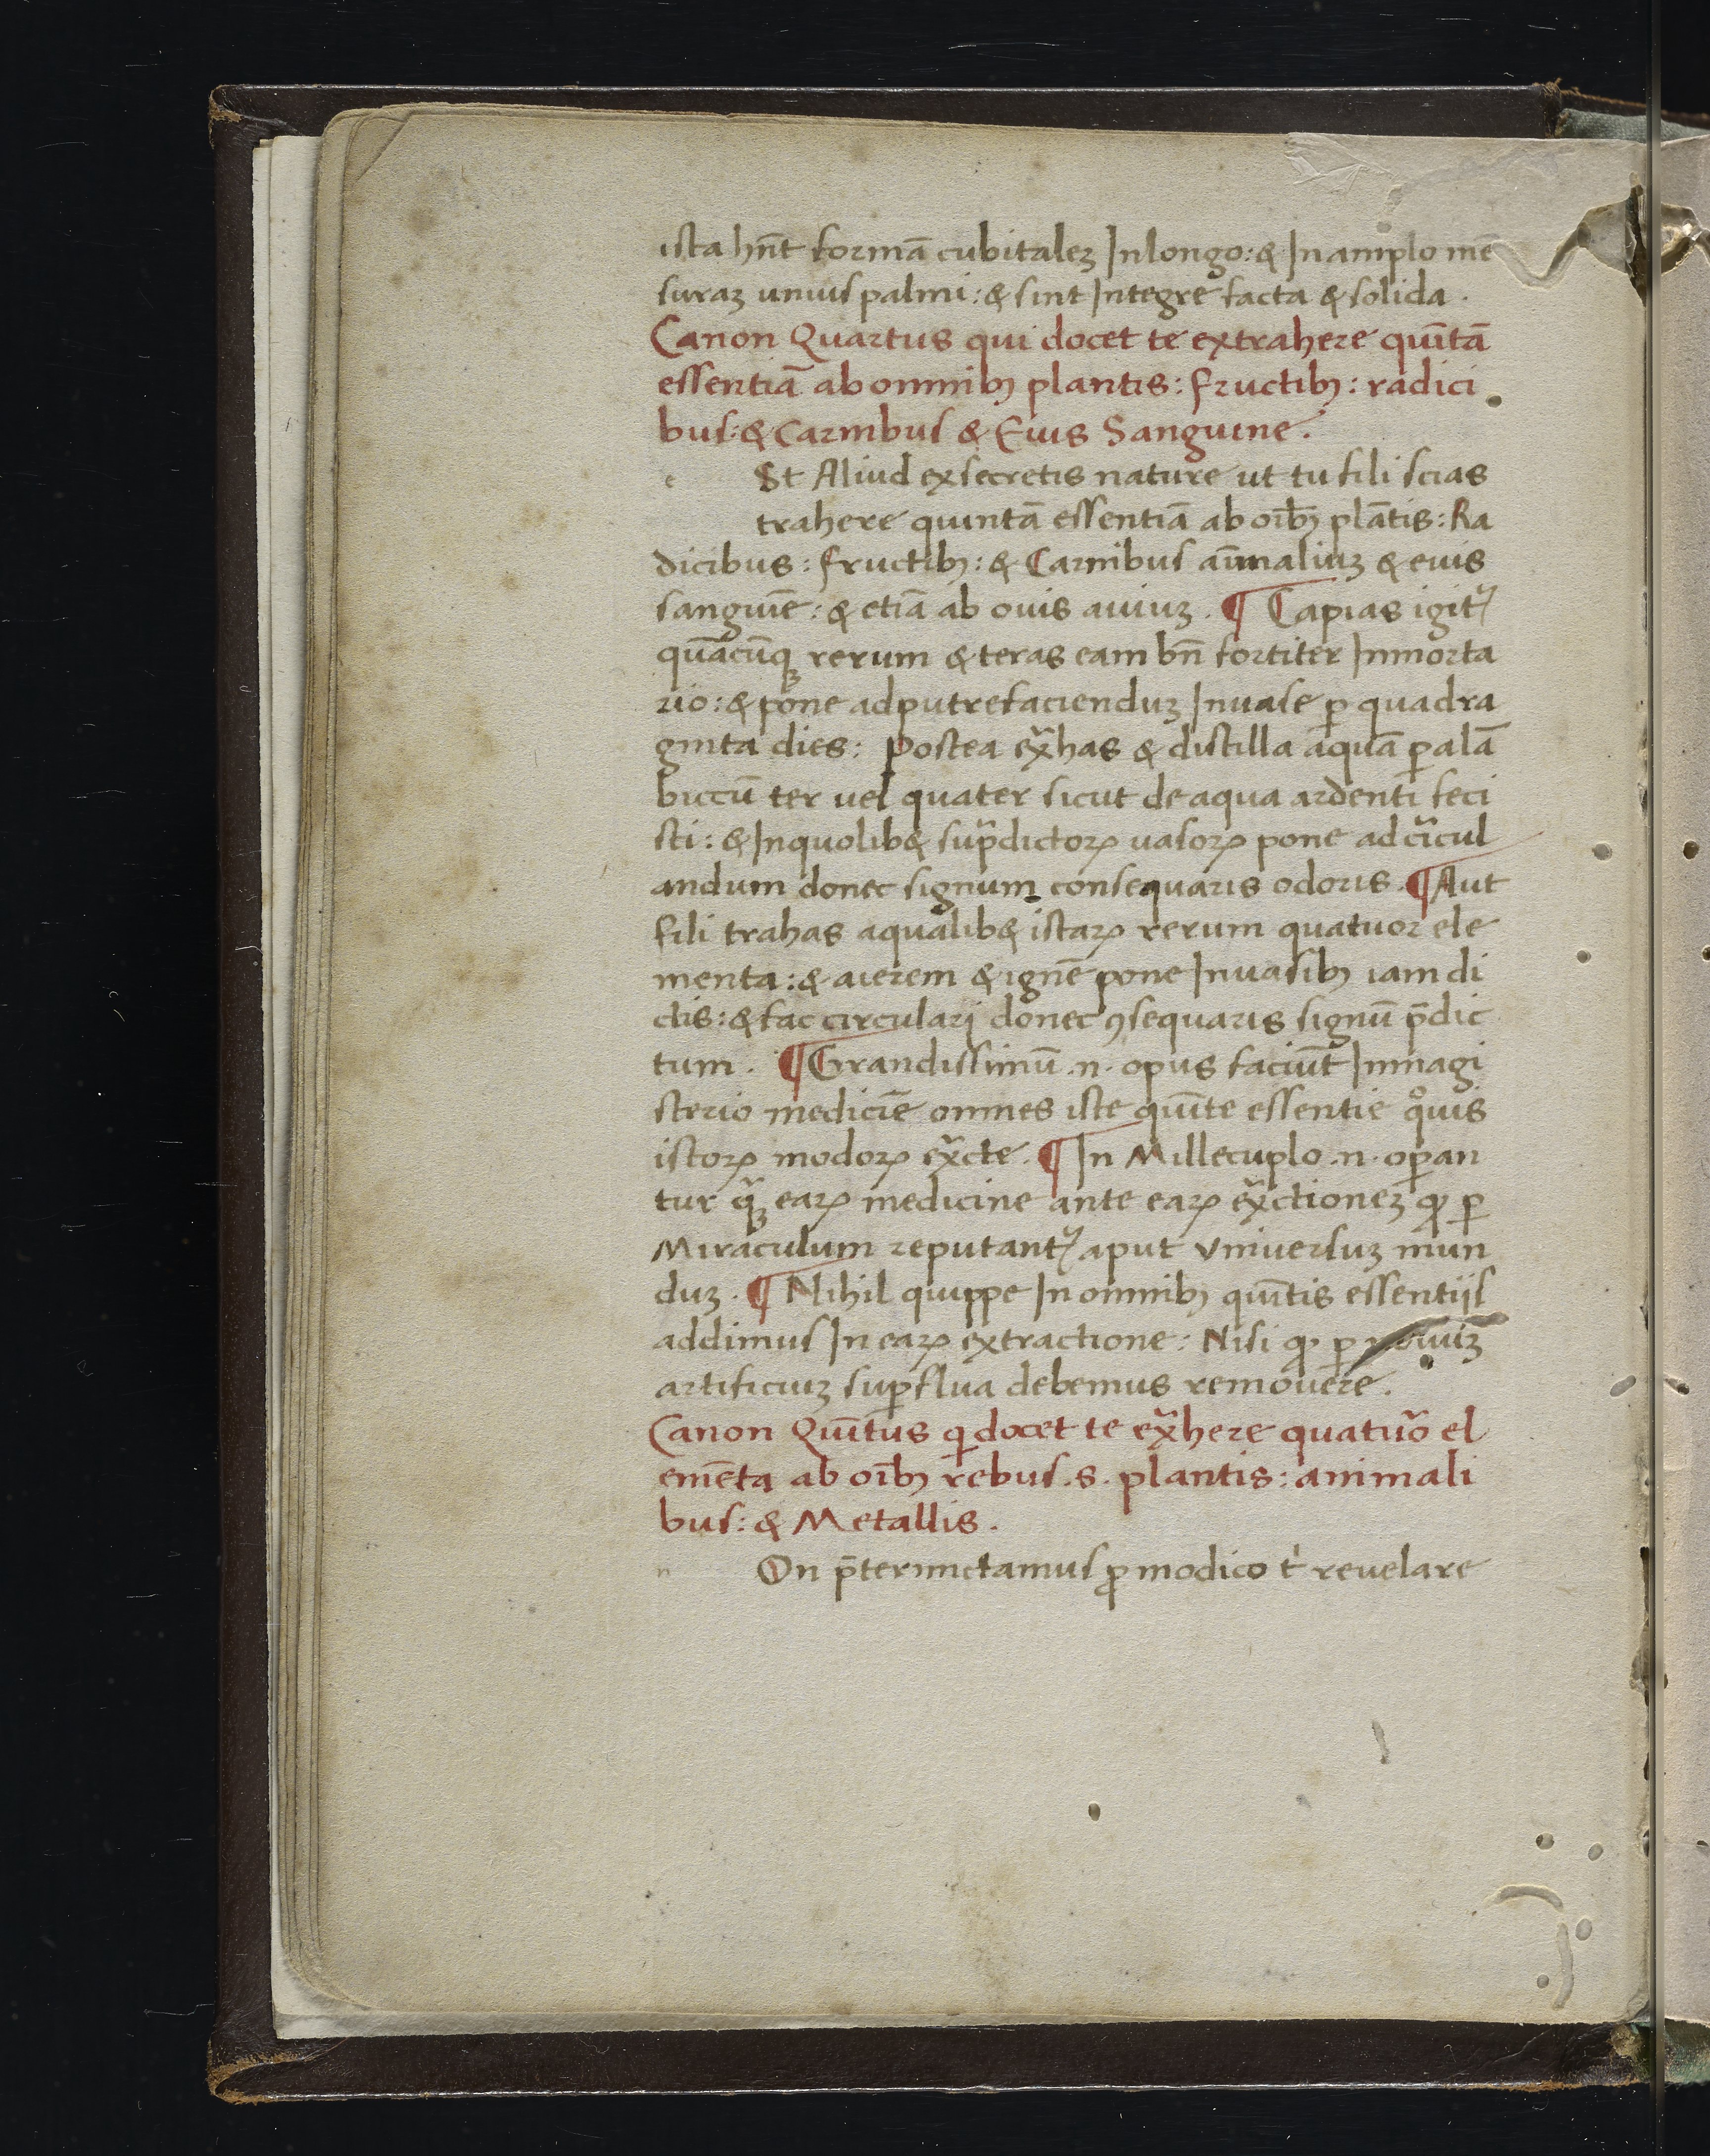 ista hn̄t formā cubitaleʒ In longo: & In amplo mē
suraʒ unius palmi: & sint Integre facta & solida.
Canon Quartus qui docet te extrahere quītā
essentiā ab omnibꝫ plantis: fructibꝫ: radici
bus: & Carnibus & Eius Sanguine.
e St Aliud ex secretis nature ut tu fili scias
trahere quintā essentiā ab oībꝫ plātis: Ra
dicibus: fructibꝫ: & Carnibus aīmaliuʒ & euis
sanguīe: & etiā ab ouis auiuʒ. ¶ Capias igitᷣ
quācūqꝫ rerum & teras eam bn̄ fortiter In morta
rio: & pone ad putrefaciendum Inuase ꝑ quadra
ginta dies: postea ex̃has & distilla aquā ꝑ alā
biccū ter uel quater sicut de aqua ardenti feci
sti: & In quolib& sup̃dictoꝝ uasoꝝ pone ad cĩcul
andum donec signum consequaris odoris. ¶ Aut
fili trahas aqualib& istaꝝ rerum quatuor ele
menta: & aierem & ignē pone In uasibꝫ iam di
ctis: & fac circulari donec ꝯsequaris signū p̄dic
tum. ¶ Grandissimū .n. opus faciūt In magi
sterio medicīe omnes iste quīte essentie qͦuis
istoꝝ modoꝝ ex̃cte. ¶ In Millecuplo .n. oꝑan
tur q̃ʒ eaꝝ medicine ante eaꝝ ex̃ctioneʒ ꝙ ꝑ
Miraculum reputantᷣ aput vniuersuʒ mun
duʒ. ¶ Nihil quippe In omnibꝫ quītis essentijs
addimus In eaꝝ extractione: Nisi ꝙ ꝑ
artificiuʒ suꝑflua debemus remouere.
Canon Quītus qi docet te ex̃here quatuõ el
emēta ab oībꝫ rebus .s. plantis: animali
bus: & Metallis.
n On p̄termictamus ꝓ modico ti revelare